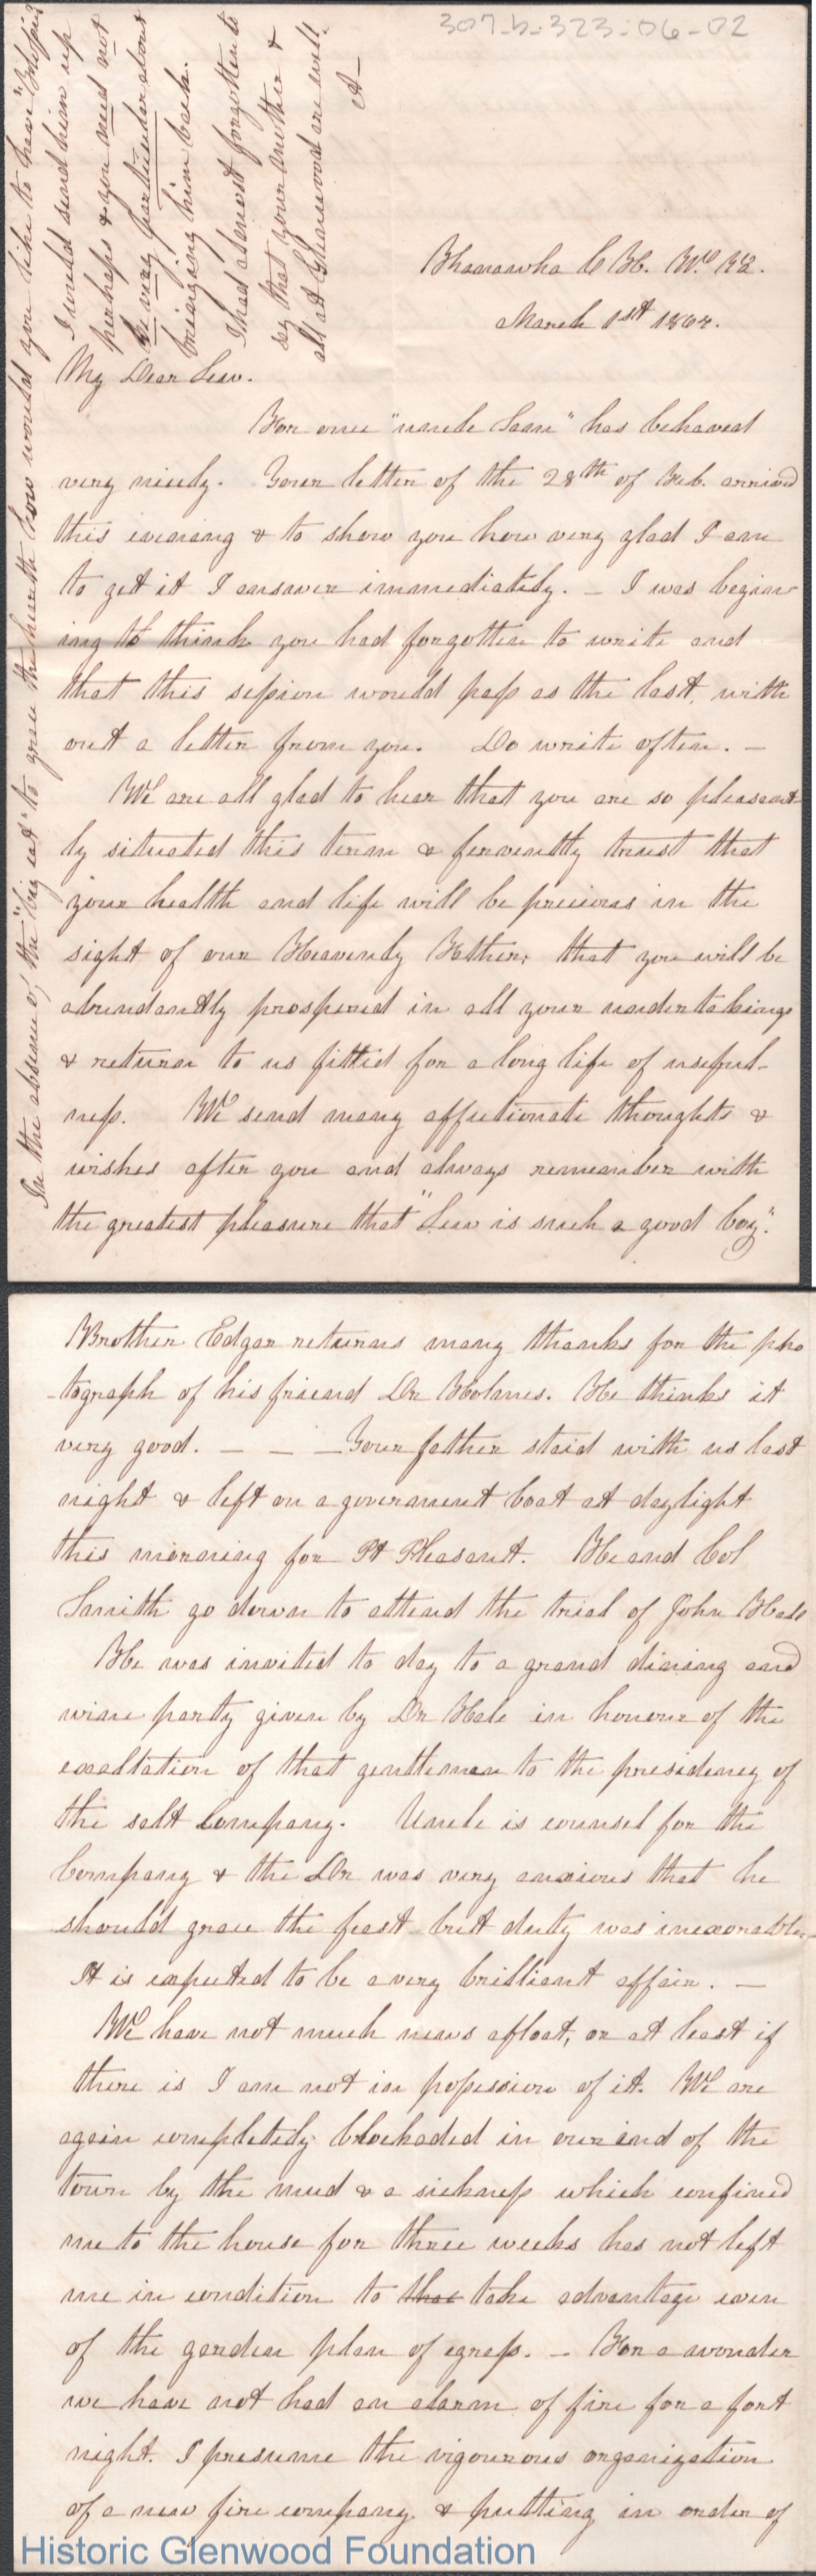 307-b-323-06-02
Khanawha C H. W. Va.
March 1st 1864.
My Dear Lew.
For once "uncle Sam" has behaved
very nicely. Your letter of the 28th of Feb. arrived
this evening & to show you how very glad I am
to get it I answer immediately. – I was begin-
ing to think you had forgotten to write and
that this session would pass as the last, with
out a letter from you. Do write often. –
We are all glad to hear that you are so pleasant-
ly situated this term & fervently trust that
your health and life will be precious in the
sight of our Heavenly Father, that you will be
abundantly prospered in all your undertakings
& return to us fitted for a long life of useful-
ness. We send many affectionate thoughts &
wishes after you and always remember with
the greatest pleasure that "Lew is such a good boy."
In the absence of the "big cat" to grace the hearth how would you like to have
I would send him up
perhaps & you need not
be very particular about
bringing him back.
I had almost forgotten to
say that your mother &
all at Glenwood are well.
A–
Brother Edgar returns many thanks for the pho
-tograph of his friend Dr Holmes. He thinks it
very good. – – – Your father staid with us last
night & left on a government boat at daylight
this morning for Pt Pleasant. He and Col
Smith go down to attend the trial of John Hale
He was invited to day to a grand dining and
wine party given by Dr Hale in honour of the
exaltation of that gentleman to the presidency of
the salt Company. Uncle is counsel for the
Company & the Dr was very anxious that he
should grace the feast but duty was inexorable–
It is expected to be a very brilliant affair. –
We have not much news afloat, or at least if
there is I am not in possession of it. We are
again completely blockaded in our end of the
town by the mud & a sickness which confined
me to the house for three weeks has not left
me in condition to that take advantage even
of the garden plan of egress. – For a wonder
we have not had an alarm of fire for a fort
night. I presume the vigourous organization
of a new fire company & putting in order of
Historic Glenwood Foundation